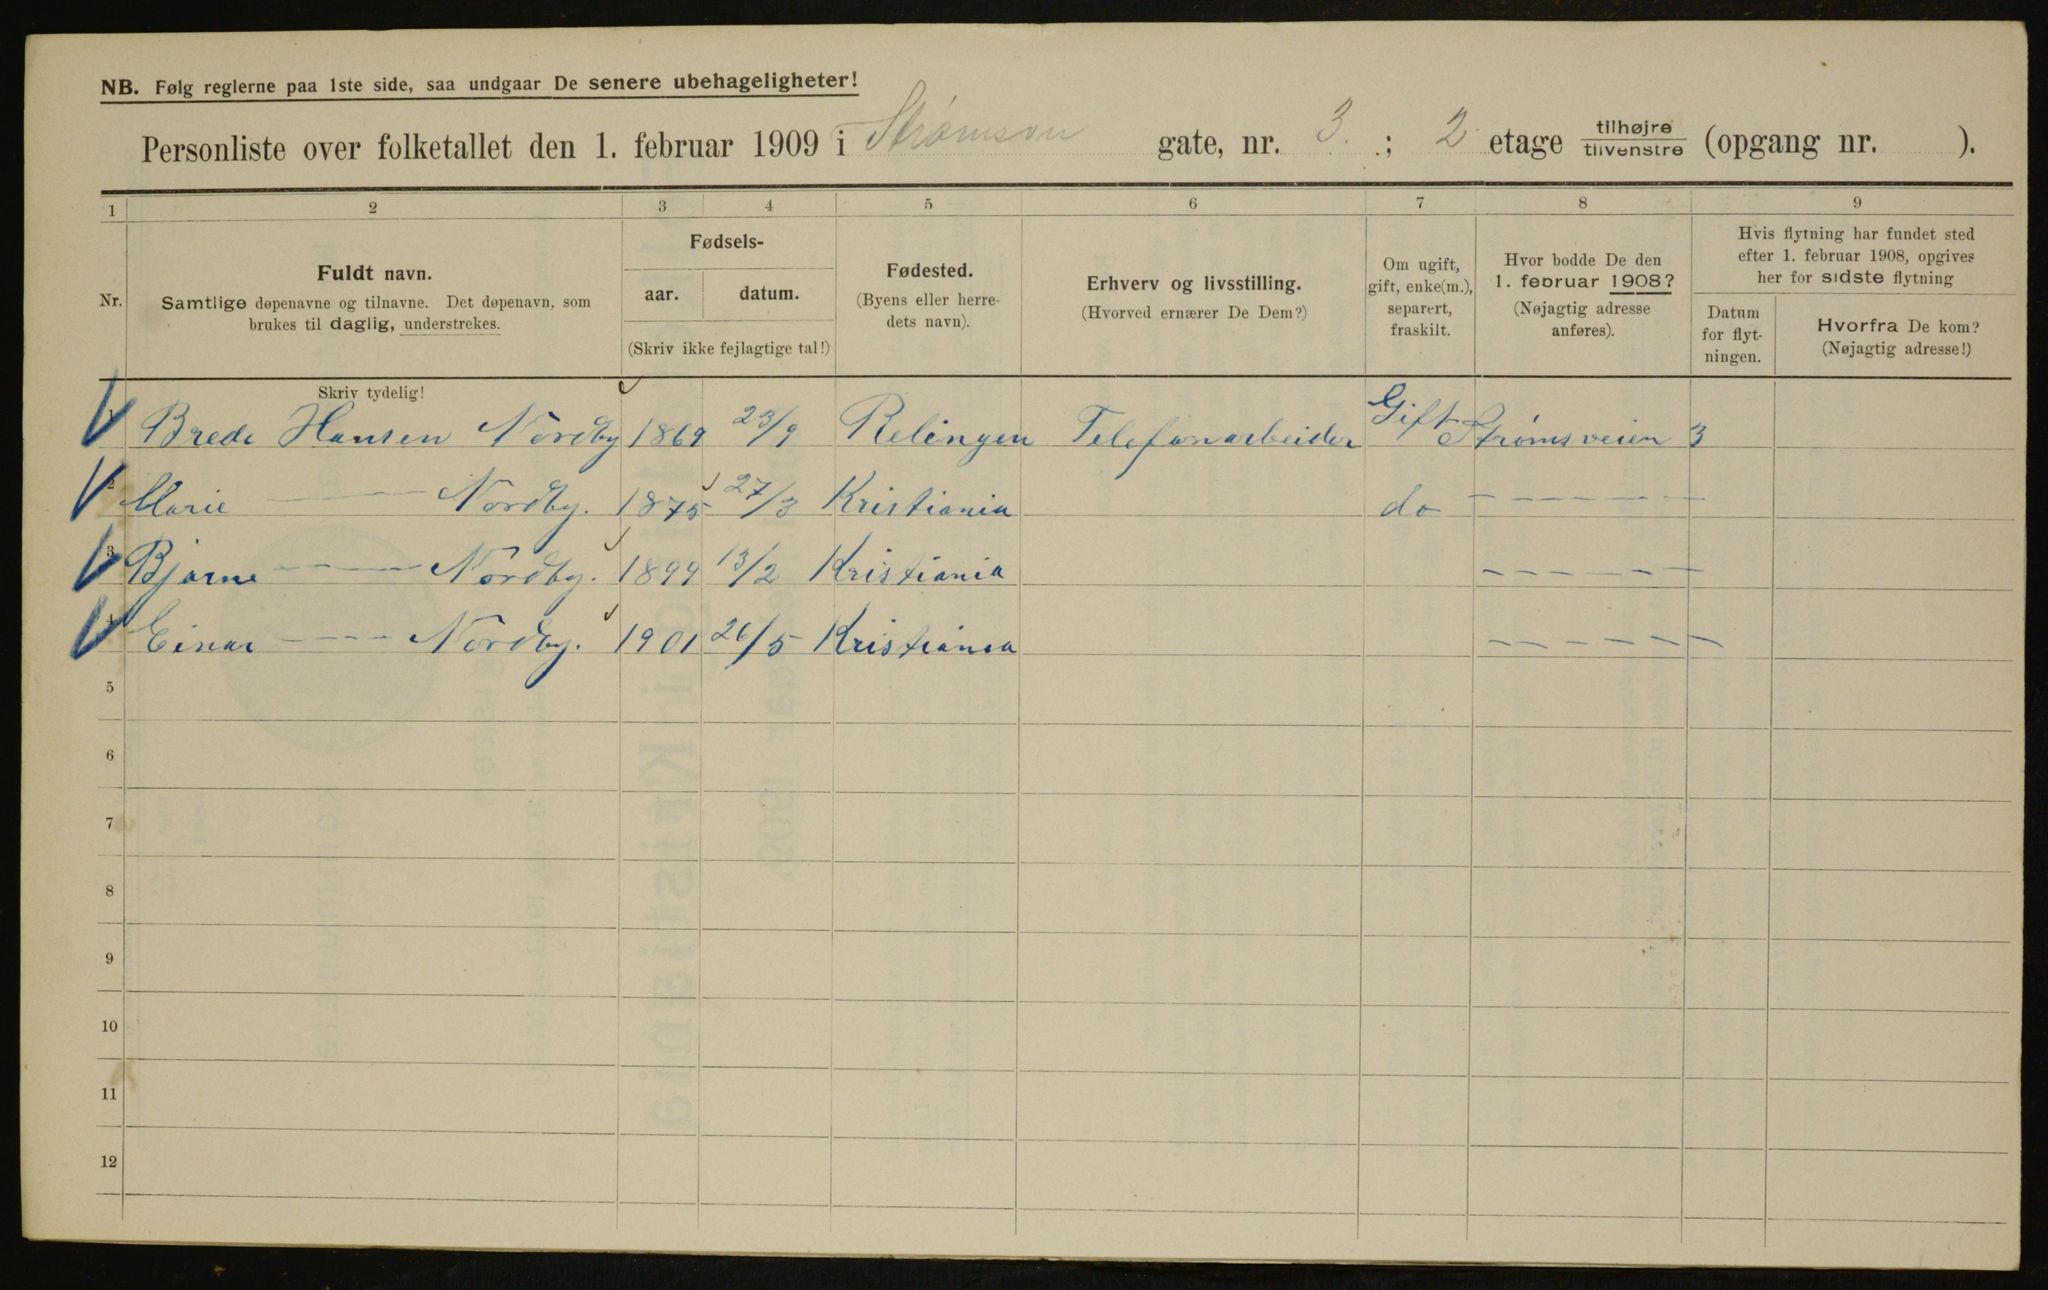 NB. Følg reglerne paa 1ste side, saa undgaar De senere ubehageligheter!
Personliste over folketallet den 1. februar 1909 i Strømsvn gate, nr. 3. ; 2 etage tilhøjre/tilvenstre (opgang nr. ).
1 2 3 4 5 6 7 8 9
Nr.
Fuldt navn.
Samtlige døpenavne og tilnavne. Det døpenavn, som
brukes til daglig, understrekes.
Fødsels-
aar. datum.
(Skriv ikke fejlagtige tal!)
Fødested.
(Byens eller herre-
dets navn).
Erhverv og livsstilling.
(Hvorved ernærer De Dem?)
Om ugift,
gift, enke(m.),
separert,
fraskilt.
Hvor bodde De den
1. februar 1908?
(Nøjagtig adresse
anføres).
Hvis flytning har fundet sted
efter 1. februar 1908, opgives
her for sidste flytning
Datum
for flyt-
ningen.
Hvorfra De kom?
(Nøjagtig adresse!)
Skriv tydelig!
1 Brede Hansen Nordby 1869 23/9 Relingen Telefonarbeider Gift Strømsveien 3
2 Marie — Nordby. 1875 27/3 Kristiania do - - - - - -
3 Bjarne - - - Nordby. 1899 13/2 Kristiania - - - - - -
4 Einar - - - Nordby. 1901 26/5 Kristiania - - - - - -
5
6
7
8
9
10
11
12